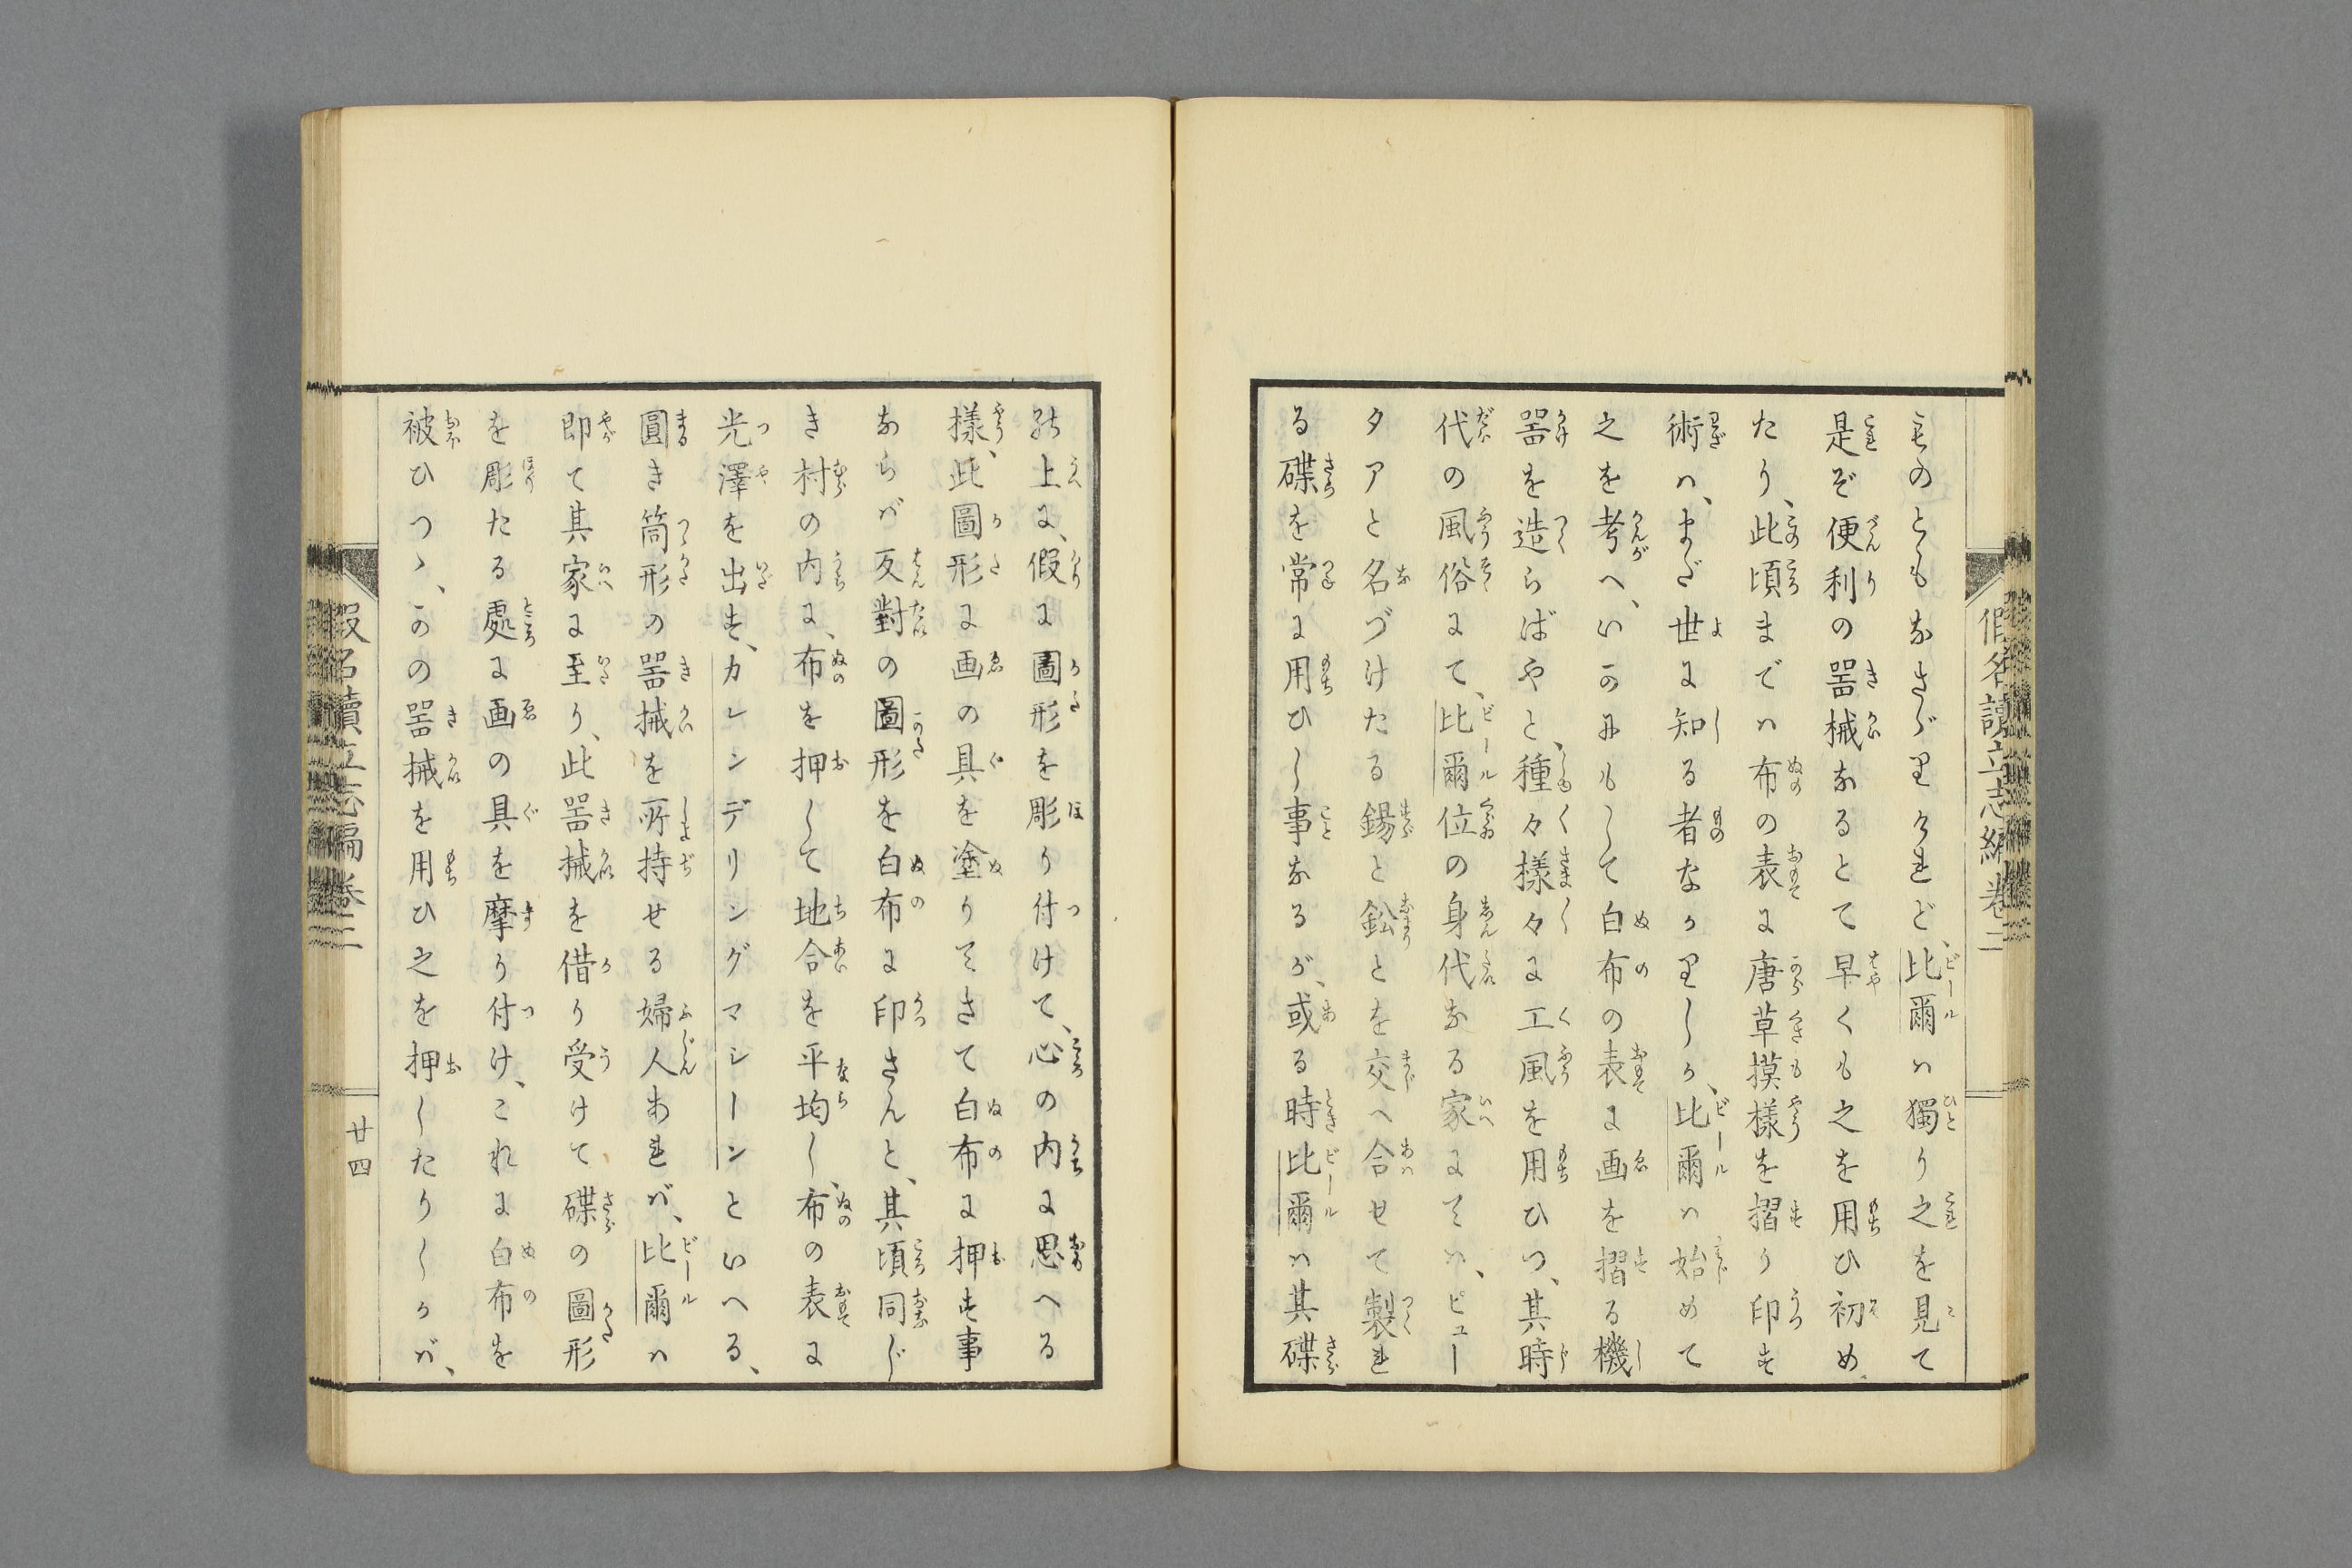 ものともなさゞりけれど、比爾ハ獨り之を見て
是ぞ便利の噐械なるとて早くも之を用ひ初め
たり、此頃までハ布の表に唐草摸樣を摺り印す
術ハ、まだ世に知る者なかりしか、比爾ハ始めて
之を考へ、いかにもして白布の表に画を摺る機
噐を造らばやと、種々樣々に工風を用ひつ、其時
代の風俗にて、比爾位の身代なる家にてハ、ピュー
タアと名づけたる錫と鈆とを交へ合せて製れ
る碟を常に用ひし事なるが、或る時比爾ハ其碟
の上に、假に圖形を彫り付けて、心の内に思へる
樣、此圖形に画の具を塗りてさて白布に押す事
ならバ反對の圖形を白布に印さんと、其頃同じ
き村の内に、布を押して地合を平均し、布の表に
光澤を出す、カレンデリングマシーンといへる、
圓き筒形の噐械を所持せる婦人あれバ、比爾ハ
即て其家に至り、此噐械を借り受けて碟の圖形
を彫たる處に画の具を摩り付け、これに白布を
被ひつゝ、かの噐械を用ひ之を押したりしかバ、
假名讀立志編卷二
假名讀立志編卷二
廿四